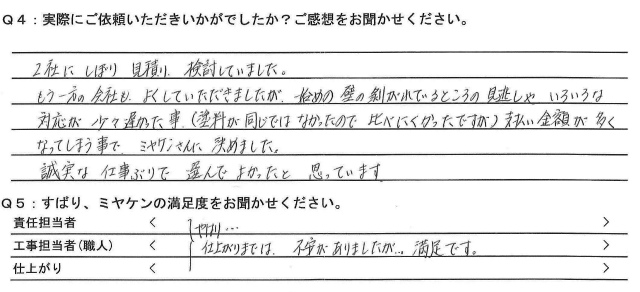 Q4：実際にご依頼いただきいかがでしたか？ご感想をお聞かせください。
2社にしぼり見積り、検討していました。
もう一方の会社も、よくしていただきましたが、始めの壁の剝がれているところの見逃しや、いろいろな
対応が少々遅かった事、（塗料が同じではなかったので比べにくかったですが）支払い金額が多く
なってしまう事で ミヤケンさんに 決めました。
誠実な仕事ぶりで 選んでよかったと 思っています
Q5：ずばり、ミヤケンの満足度をお聞かせください。
責任担当者 < やはり… >
工事担当者（職人） < 仕上がりまでは、不安がありましたが… 満足です。 >
仕上がり < >